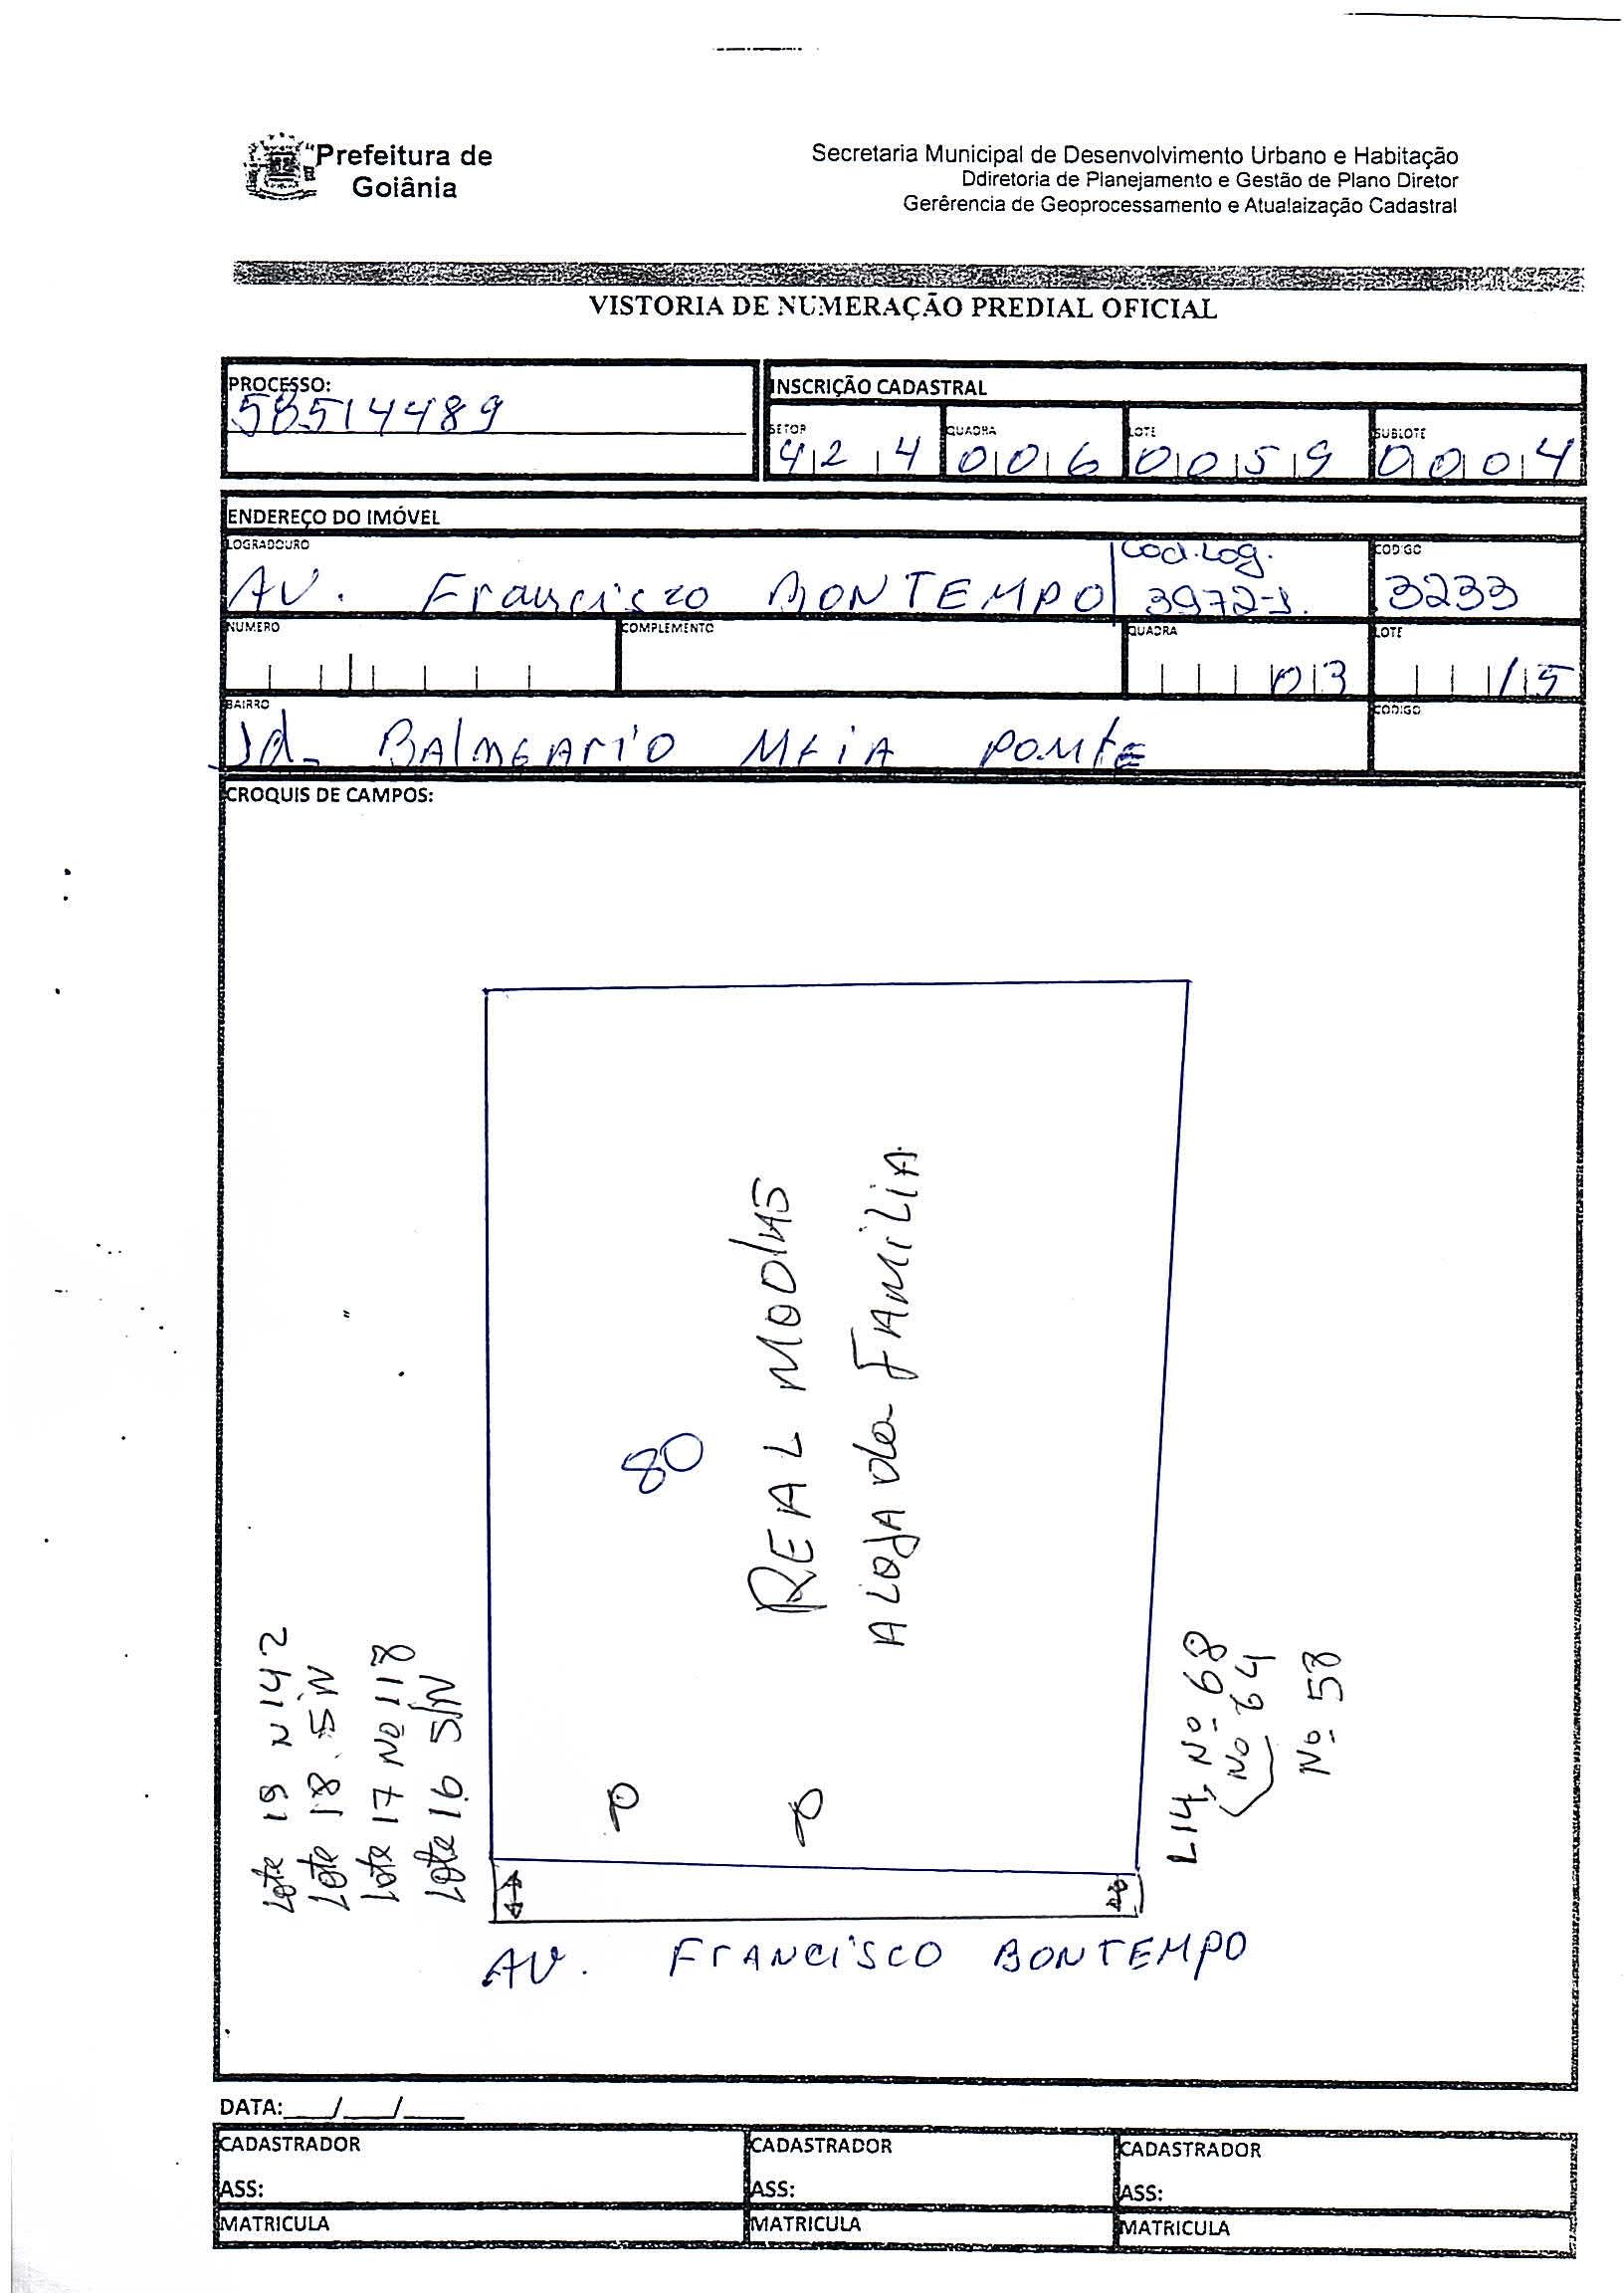 Prefeitura de
Goiânia
Secretaria Municipal de Desenvolvimento Urbano e Habitação
Ddiretoria de Planejamento e Gestão de Plano Diretor
Gerêrencia de Geoprocessamento e Atualaização Cadastral
VISTORIA DE NUMERAÇÃO PREDIAL OFICIAL
PROCESSO:
58514489
INSCRIÇÃO CADASTRAL
SETOR QUADRA LOTE SUBLOTE
424 006 0059 0004
ENDEREÇO DO IMÓVEL
LOGRADOURO Cod.Log. CODIGO
AV. Francisco BONTEMPO 3972-1. 3233
NUMERO COMPLEMENTO QUADRA LOTE
03 15
BAIRRO CODIGO
Jd. BAlnEArio MEiA PONtE
CROQUIS DE CAMPOS:
80
REAL MODAS
A LOJA da FAMILIA
Lote 19 N 142
Lote 18 S/N
Lote 17 Nº 118
Lote 16 S/N
L14, Nº 68
Nº 64
Nº 58
AV. FrANCiSCO BONTEMPO
DATA:___/___/____
CADASTRADOR CADASTRADOR CADASTRADOR
ASS: ASS: ASS:
MATRICULA MATRICULA MATRICULA